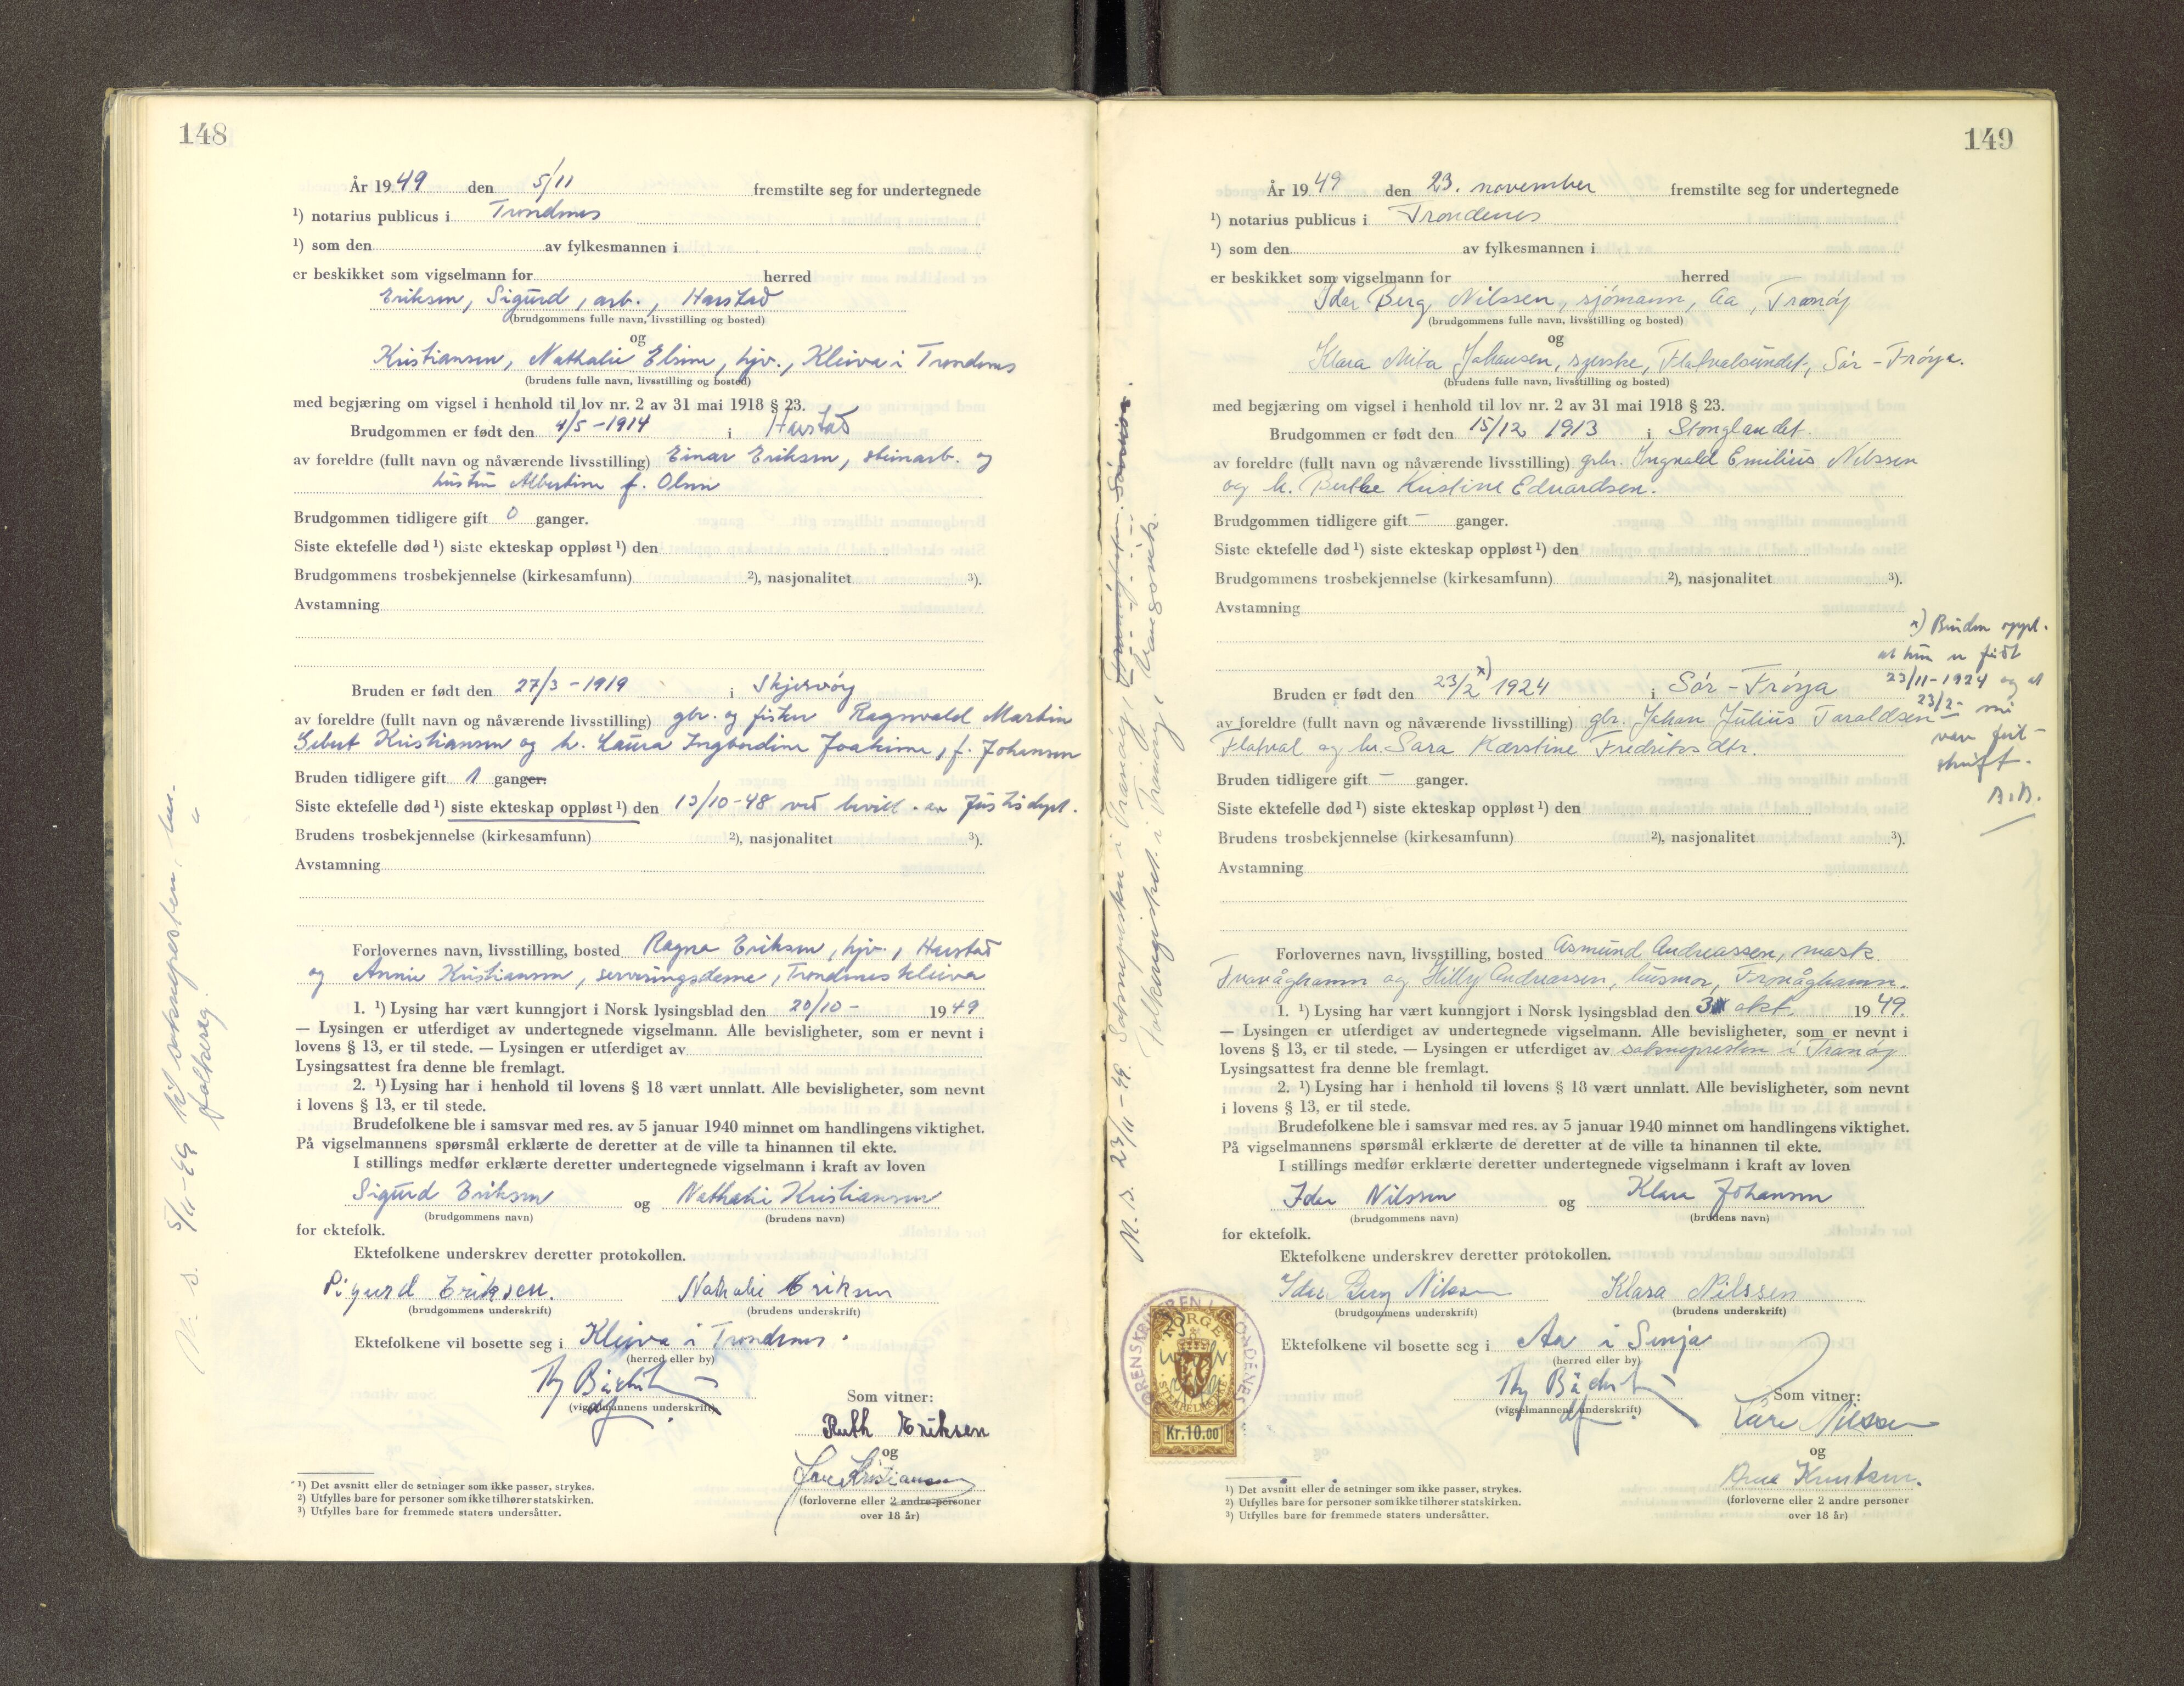 148
År 1949 den 5/11 fremstilte seg for undertegnede
¹) notarius publicus i Trondenes
¹) som den av fylkesmannen i
er beskikket som vigselmann for herred
Eriksen, Sigurd, arb., Harstad
(brudgommens fulle navn, livsstilling og bosted)
og
Kristiansen, Nathalie Eline, hjv., Kleiva i Trondenes
(brudens fulle navn, livsstilling og bosted)
med begjæring om vigsel i henhold til lov nr. 2 av 31 mai 1918 § 23.
Brudgommen er født den 4/5 - 1914 i Harstad
av foreldre (fullt navn og nåværende livsstilling) Einar Eriksen, steinarb. og
hustru Albertine f. Olsen
Brudgommen tidligere gift 0 ganger.
Siste ektefelle død ¹) siste ekteskap oppløst ¹) den
Brudgommens trosbekjennelse (kirkesamfunn) ²), nasjonalitet ³).
Avstamning
Bruden er født den 27/3 - 1919 i Skjervøy
av foreldre (fullt navn og nåværende livsstilling) gbr. og fisker Ragnvald Martin
Kristiansen og h. Laura Ingbordine Joakime, f. Johansen
Bruden tidligere gift 1 ganger.
Siste ektefelle død ¹) siste ekteskap oppløst ¹) den 13/10-48 ved bevill. av Justisdept.
Brudens trosbekjennelse (kirkesamfunn) ²), nasjonalitet ³).
Avstamning
Forlovernes navn, livsstilling, bosted Ragna Eriksen, hjv., Harstad
og Annie Kristiansen, serveringsdame, Trondenes Kleiva
1. ¹) Lysing har vært kunngjort i Norsk lysingsblad den 20/10 - 1949
— Lysingen er utferdiget av undertegnede vigselmann. Alle bevisligheter, som er nevnt i
lovens § 13, er til stede. — Lysingen er utferdiget av
Lysingsattest fra denne ble fremlagt.
2. ¹) Lysing har i henhold til lovens § 18 vært unnlatt. Alle bevisligheter, som nevnt
i lovens § 13, er til stede.
Brudefolkene ble i samsvar med res. av 5 januar 1940 minnet om handlingens viktighet.
På vigselmannens spørsmål erklærte de deretter at de ville ta hinannen til ekte.
I stillings medfør erklærte deretter undertegnede vigselmann i kraft av loven
Sigurd Eriksen og Nathalie Kristiansen
(brudgommens navn) (brudens navn)
for ektefolk.
Ektefolkene underskrev deretter protokollen.
Sigurd Eriksen. Nathalie Eriksen
(brudgommens underskrift) (brudens underskrift)
Ektefolkene vil bosette seg i Kleiva i Trondenes.
(herred eller by)
(vigselmannens underskrift)
Som vitner:
Ruth Eriksen
og
Kristiansen
(forloverne eller 2 andre personer
over 18 år)
¹) Det avsnitt eller de setninger som ikke passer, strykes.
²) Utfylles bare for personer som ikke tilhører statskirken.
³) Utfylles bare for fremmede staters undersåtter.
5/11-49 til soknepresten, her.
folkereg.
149
År 1949 den 23. november fremstilte seg for undertegnede
¹) notarius publicus i Trondenes
¹) som den av fylkesmannen i
er beskikket som vigselmann for herred
Idar Berg Nilssen, sjømann, Aa, Tranøy
(brudgommens fulle navn, livsstilling og bosted)
og
Klara Mita Johansen, syerske, Flatvalsundet, Sør-Frøya.
(brudens fulle navn, livsstilling og bosted)
med begjæring om vigsel i henhold til lov nr. 2 av 31 mai 1918 § 23.
Brudgommen er født den 15/12 1913 i Stonglandet.
av foreldre (fullt navn og nåværende livsstilling) gbr. Ingvald Emilius Nilssen
og h. Berthe Kristine Edvardsen.
Brudgommen tidligere gift - ganger.
Siste ektefelle død ¹) siste ekteskap oppløst ¹) den
Brudgommens trosbekjennelse (kirkesamfunn) ²), nasjonalitet ³).
Avstamning
Bruden er født den 23/2 x) 1924 i Sør-Frøya
av foreldre (fullt navn og nåværende livsstilling) gbr. Johan Julius Taraldsen
Flatval og h. Sara Kærstine Fredriksdtr.
Bruden tidligere gift - ganger.
Siste ektefelle død ¹) siste ekteskap oppløst ¹) den
Brudens trosbekjennelse (kirkesamfunn) ²), nasjonalitet ³).
Avstamning
x) Bruden oppl.
at hun er født
23/11-1924 og at
23/2-
var feil-
skrift.
Forlovernes navn, livsstilling, bosted Asmund Andreassen, mask.
og Hilly Andreassen, husmor,
1. ¹) Lysing har vært kunngjort i Norsk lysingsblad den 3 okt. 1949.
— Lysingen er utferdiget av undertegnede vigselmann. Alle bevisligheter, som er nevnt i
lovens § 13, er til stede. — Lysingen er utferdiget av soknepresten i Tranøy
Lysingsattest fra denne ble fremlagt.
2. ¹) Lysing har i henhold til lovens § 18 vært unnlatt. Alle bevisligheter, som nevnt
i lovens § 13, er til stede.
Brudefolkene ble i samsvar med res. av 5 januar 1940 minnet om handlingens viktighet.
På vigselmannens spørsmål erklærte de deretter at de ville ta hinannen til ekte.
I stillings medfør erklærte deretter undertegnede vigselmann i kraft av loven
Idar Nilssen og Klara Johansen
(brudgommens navn) (brudens navn)
for ektefolk.
Ektefolkene underskrev deretter protokollen.
Idar Berg Nilssen Klara Nilssen
(brudgommens underskrift) (brudens underskrift)
Ektefolkene vil bosette seg i Aa i Senja
(herred eller by)
(vigselmannens underskrift)
Som vitner:
Kåre Nilssen
og
Knutsen.
(forloverne eller 2 andre personer
over 18 år)
NORGE
Kr.10.00
¹) Det avsnitt eller de setninger som ikke passer, strykes.
²) Utfylles bare for personer som ikke tilhører statskirken.
³) Utfylles bare for fremmede staters undersåtter.
23/11-49 Soknepresten i Tranøy,
Folkeregistret i Tranøy, Vangsvik.